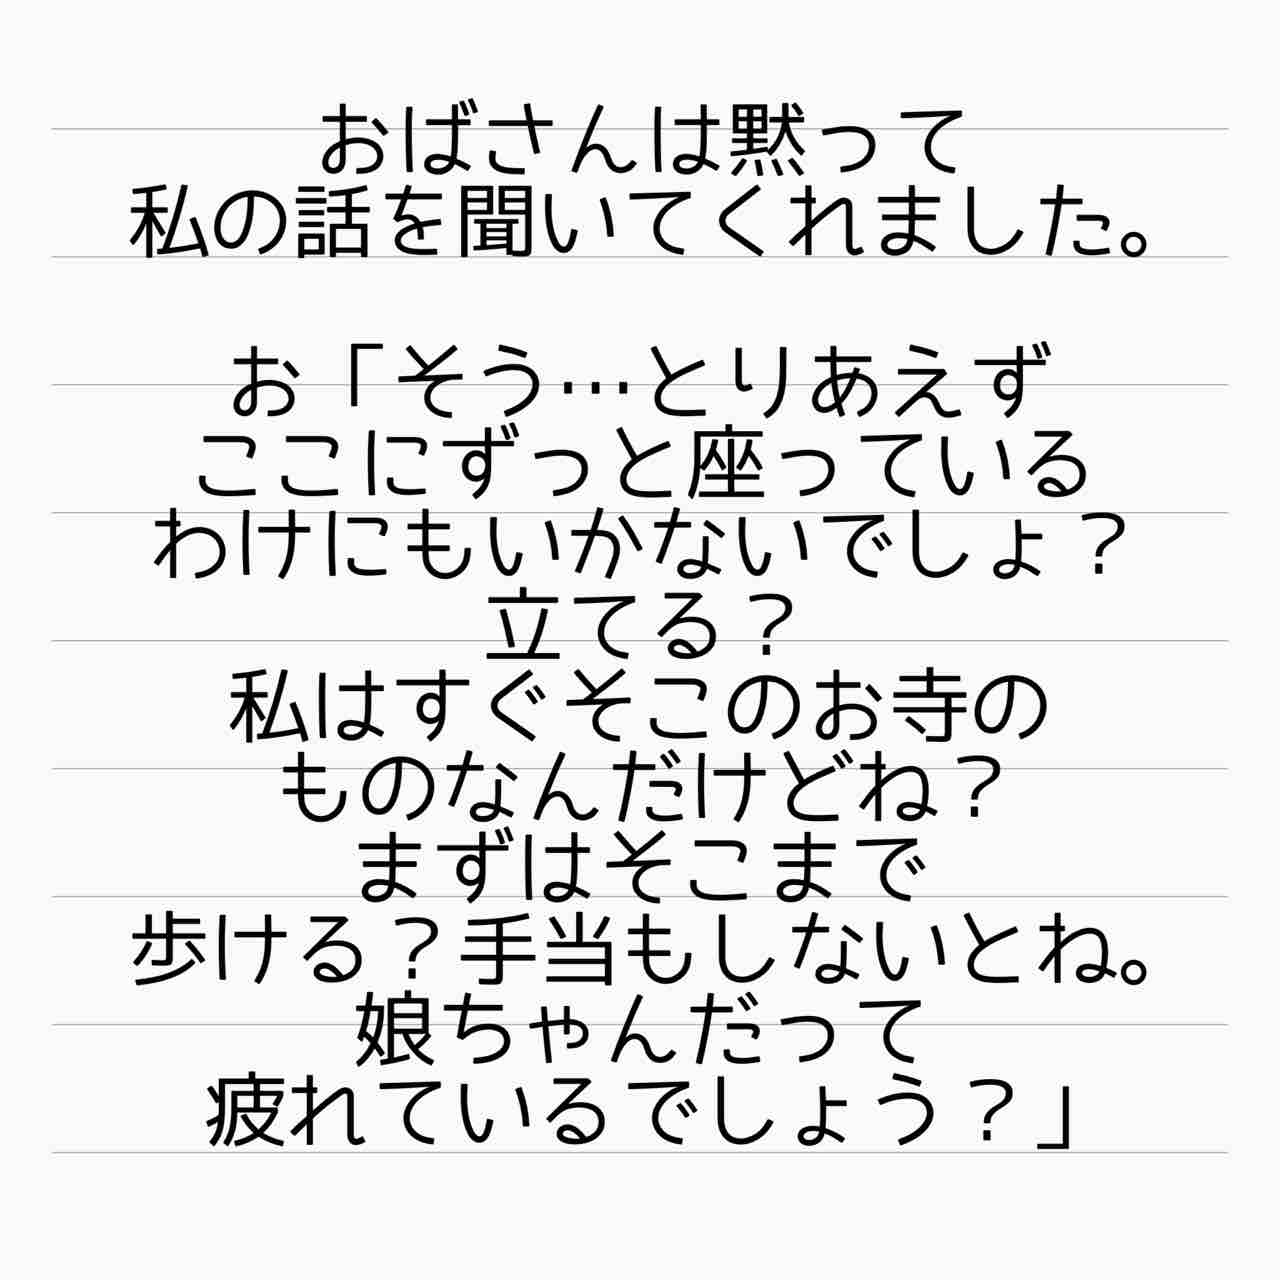 おばさんは黙って
私の話を聞いてくれました。
お「そう…とりあえず
ここにずっと座っている
わけにもいかないでしょ？
立てる？
私はすぐそこのお寺の
ものなんだけどね？
まずはそこまで
歩ける？手当もしないとね。
娘ちゃんだって
疲れているでしょう？」